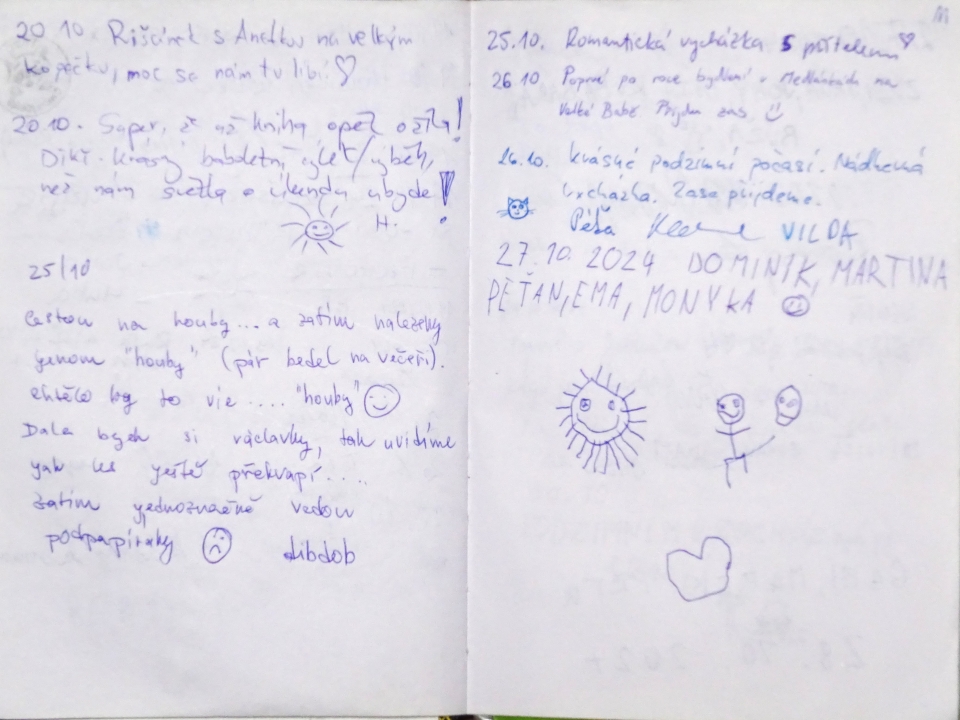 20.10. Rišánek s Anetkou na velkým
kopečku, moc se nám tu líbí ♡
20.10. Super, že už kniha opět ožila!
Díky. Krásný babdletní výlet/výběh,
než nám světla a víkendu ubyde!
H.
25/10
Cestou na houby... a zatím nalezeny
jenom "houby" (pár bedel na večeři).
chtělo by to víc .... "houby"
Dala bych si václavky, tak uvidíme
jak les ještě překvapí....
zatím jednoznačně vedou
podpapíráky
dibdob
25.10. Romantická vycházka s přítelem ♡
26.10 Poprvé po roce bydlení v Medlánkách na
Velké Babě. Přijdu zas.
26.10. krásné podzimní počasí. Nádherná
vycházka. Zase přijdeme.
Péťa VILDA
27.10. 2024 DOMINIK, MARTINA
PEŤAN, EMA, MONYKA